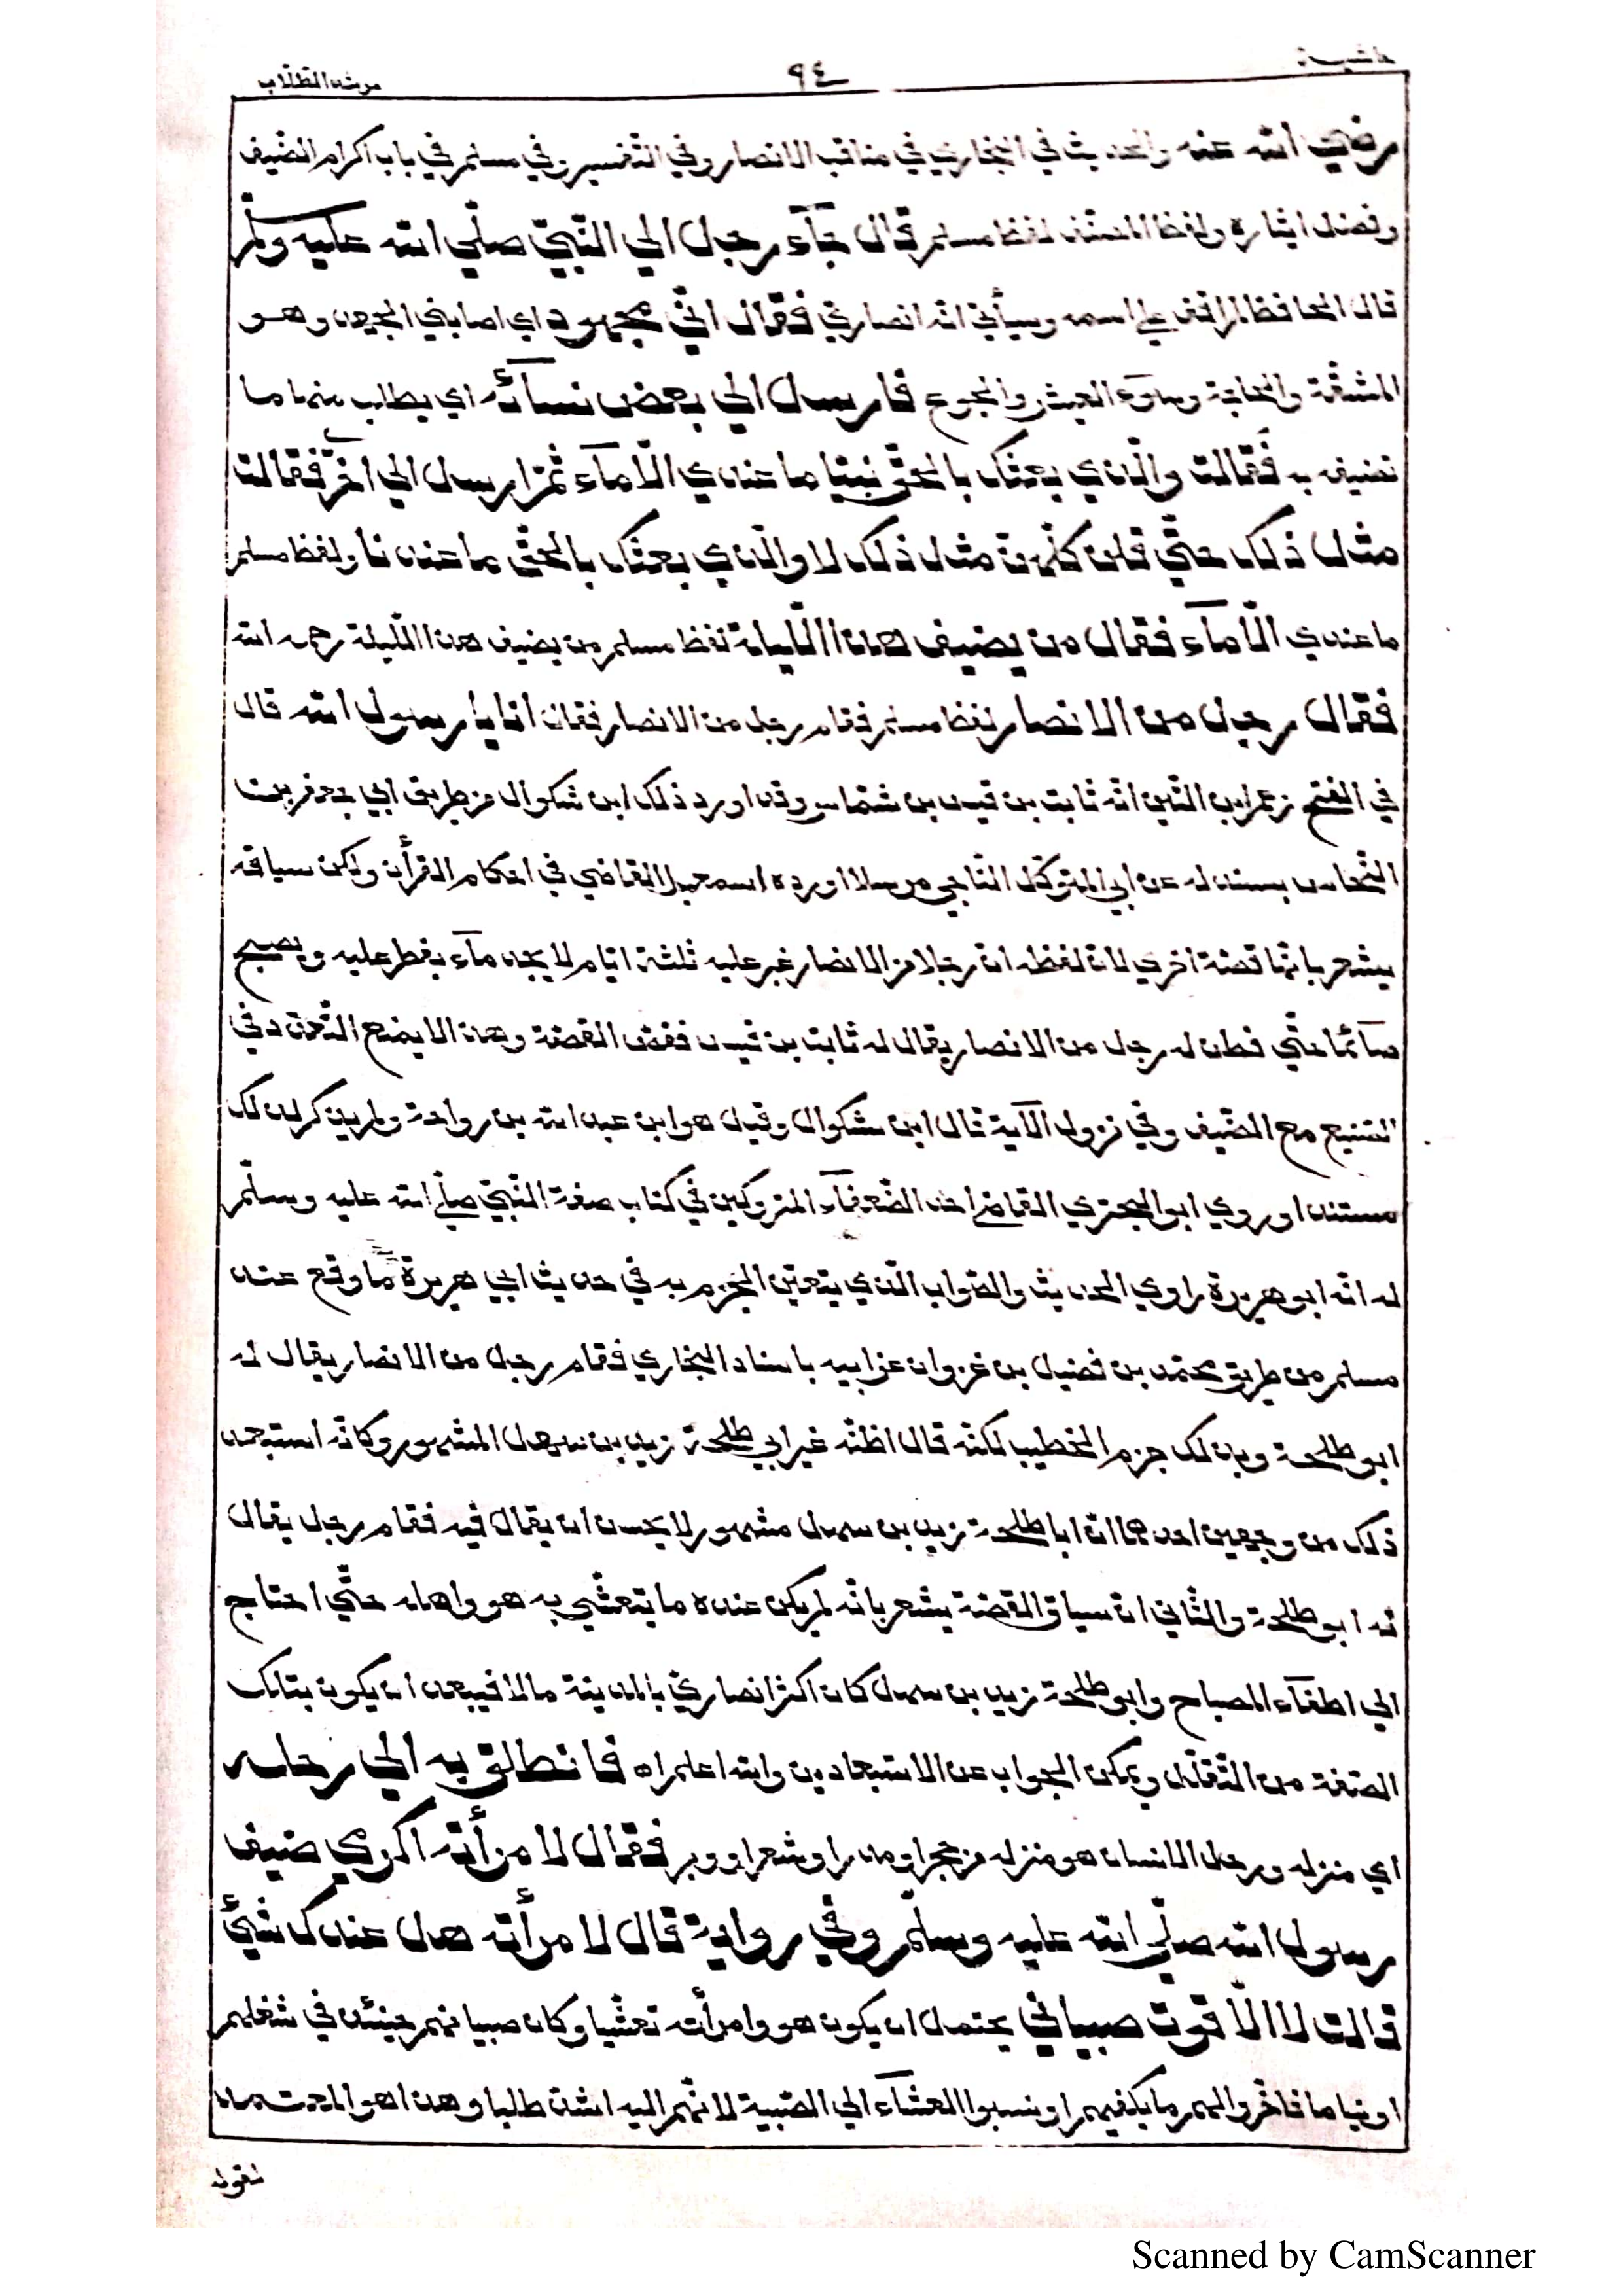 حاشية
٩٤
مرشد الطلاب
رضي الله عنه والحديث في البخاري في مناقب الانصار وفي التفسير وفي مسلم في باب اكرام الضيف
وفضل ايثاره ولفظ المصنف لفظ مسلم قال جآء رجل الي النبيّ صلّي الله عليه وسلّم
قال الحافظ لم اقف علي اسمه وسيأتي انه انصاري فقال انّي مجهود اي اصابني الجهد وهو
المشقّة والحاجة وسوء العيش والجوع فارسل الي بعض نسآئه اي يطالب منها ما
تضيفه به فقالت والّذي بعثك بالحقّ نبيّا ما عندي الّا مآء ثمّ ارسل الي اخري فقالت
مثل ذلك حتّي قلن كلّهنّ مثل ذلك لا والّذي بعثك بالحقّ ما عندنا ولفظ مسلم
ما عندي الّا مآء فقال من يضيف هذا اللّيلة لفظ مسلم من يضيف هذا اللّيلة رحمه الله
فقال رجل من الانصار لفظ مسلم فقام رجل من الانصار فقال انا يا رسول الله قال
في الفتح زعم ابن التّين انّه ثابت بن قيس بن شمّاس وقد اورد ذلك ابن شكوال من طريق ابي جعفر بن
النّحاس بسند له عن ابي المتوكّل النّاجي مرسلا اورده اسمعيل القاضي في احكام القرأن ولكن سياقه
يشعر بانّها قصّة اخري لانّ لفظه انّ رجلا من الانصار غبر عليه ثلثة ايّام لا يجد مآء يفطر عليه ويصبح
صآئما حتّي فطن له رجل من الانصار يقال له ثابت بن قيس فقصّ القصّة وهذا لا يمنع التّعدّد في
الصّنيع مع الضّيف وفي نزول الآية قال ابن شكوال وقيل هو ابن عبد الله بن رواحة ولم يذكر لذلك
مستندا وروي ابو البحتري القاضي احد الضّعفآء المتروكين في كتاب صفة النّبيّ صلّي الله عليه وسلّم
له انّه ابو هريرة راوي الحديث والصّواب الّذي يتعيّن الجزم به في حديث ابي هريرة ما وقع عند
مسلم من طريق محمّد بن فضيل بن غزوان عن ابيه باسناد البخاري فقام رجل من الانصار يقال له
ابو طلحة وبذلك جزم الخطيب لكنّه قال اظنّه غير ابي طلحة زيد بن سهل المشهور وكانّه استبعد
ذلك من وجهين احدهما انّ ابا طلحة زيد بن سهل مشهور لا يحسن ان يقال فيه فقام رجل يقال
له ابو طلحة والثّاني انّ سياق القصّة يشعر بانّه لم يكن عنده ما يتعشّي به هو واهله حتّي احتاج
الي اطفآء المصباح وابو طلحة زيد بن سهل كان اكثر انصاري بالمدينة مالا فيبعد ان يكون بتلك
الصّفة من التّقلّل ويمكن الجواب عن الاستبعادين والله اعلم اه فانطلق به الي رحله
اي منزله ورحل الانسان هو منزله من حجر او مدر او شعر او وبر فقال لامرأته اكرمي ضيف
رسول الله صلّي الله عليه وسلّم وفي رواية قال لامرأته هل عندك شيئ
قالت لا الّا قوت صبياني يحتمل ان يكون هو وامرأته تعشّيا وكان صبيانهم حينئذ في شغلهم
او نياما فاخّروا لهم ما يكفيهم او نسبوا العشآء الي الصّبية لانّهم اليه اشدّ طلبا وهذا هو المعتمد
لقوله
Scanned by CamScanner